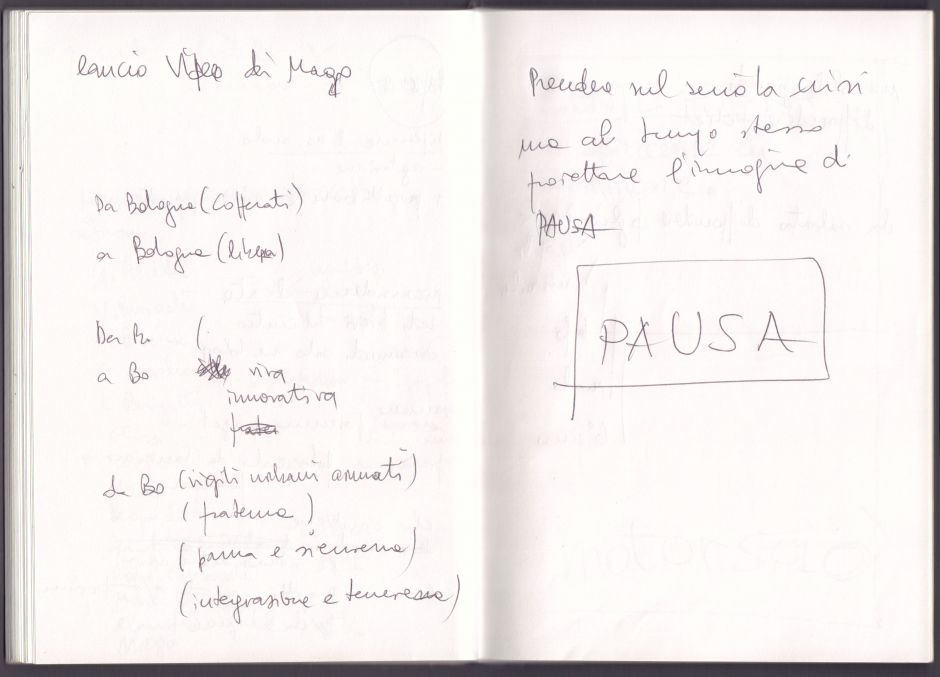 lancio Video dei Mago
Da Bologna (Cofferati)
a Bologna (libera)
Da Bo (.
a Bo viva
innovativa
da Bo (vigili urbani armati)
(fraterna)
(paura e sicurezza)
(integrazione e tenerezza)
Prendere sul serio la crisi
ma al tempo stesso
proiettare l'immagine di
PAUSA
PAUSA